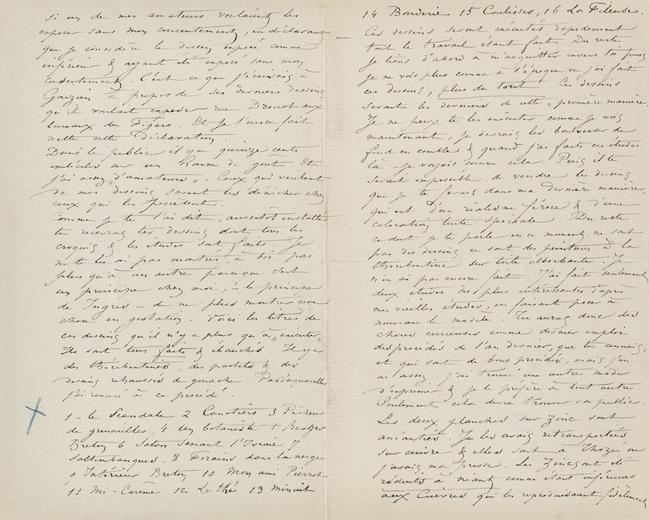 Si un de mes amateurs voulaient les
exposer sans mon consentement, en déclarant
que je considère le dessin exposé comme
inférieur & ayant été exposé sans mon
C'est ce que j'écrivais à
à propos de ses derniers dessins
qu'il voulait exposer rue Drouot aux
bureaux du Figaro. Et je l'eusse fait
nette cette déclaration.
Dans le public il y a quinze cents
imbéciles sur un homme de goût. Et
j'ai assez "d'amateurs". Ceux qui veulent
de mes dessins savent les dénicher chez
ceux qui les possèdent.
Comme je te l'ai dit, aussitôt installé
tu recevras les dessins dont tous les
croquis & les études sont faits. Je
ne te les ai pas montrés, à toi pas
plus qu'à un autre parce que c'est
un principe chez moi, - le principe
de Ingres - de ne plus montrer une
chose en gestation. Voici les titres de
ces dessins qu'il n'y a plus qu'à "exécuter"
Ils sont tous faits & ébauchés. Il y a
des thérébentines, des pastels & des
dessins rehaussés de gouache. Pas d'aquarelles
j'ai renoncé à ce procédé.
1 - le Scandale 2 Canotiers 3 Pêcheur
de grenouilles. 4 un botaniste 5 Berger
Breton 6 Satan semant l'Ivraie 7
Saltimbanques. 8 Terrains dans la neige
9 Intérieur Breton, 10 Mon ami Pierrot
11 Mi-Carême 12 Le thé 13 Minuit
14 Borderie 15 Coulisses, 16 La Fileuse.
Ces dessins seront exécutés rapidement
tout le travail étant fait. Du reste
je tiens d'abord à m'acquitter envers toi puis
je ne vois plus comme à l'époque où j'ai fait
ces dessins, plus du tout. Ces dessins
seront les derniers de cette "première manière.
Je ne peux te les exécuter comme je vois
maintenant, je devrais les bouleverser de
fond en comble & quand j'ai fait ces études
là je voyais comme cela. Puis il te
serait impossible de vendre les dessins
que je te ferais dans ma dernière manière,
qui est d'un réalisme féroce & d'une
coloration toute spéciale. Du reste
ce dont je te parle en ce moment, ne sont
pas des dessins ce sont des peintures à la
thérébentine sur toile absorbante. Je
n'en ai pas encore fait. J'ai fait seulement
deux études des plus intéressantes d'après
mes vieilles études, en faisant poser à
nouveau le modèle. Tu auras donc des
choses curieuses comme dernier emploi
des procédés de l'an dernier, que tu connais,
et qui sont de bons procédés, mais j'en
ai assez. j'ai trouvé une autre mode
d'exprimer & je le préfère à tout autre.
Seulement cela devra trouver son public.
Les deux planches sur zinc sont
anéanties. Je les avais retransportées
sur cuivre & elles sont à Thozée où
j'avais ma presse. Les zincs ont été
réduits à néant comme étant inférieurs
aux cuivres qui les reproduisaient fidèlement